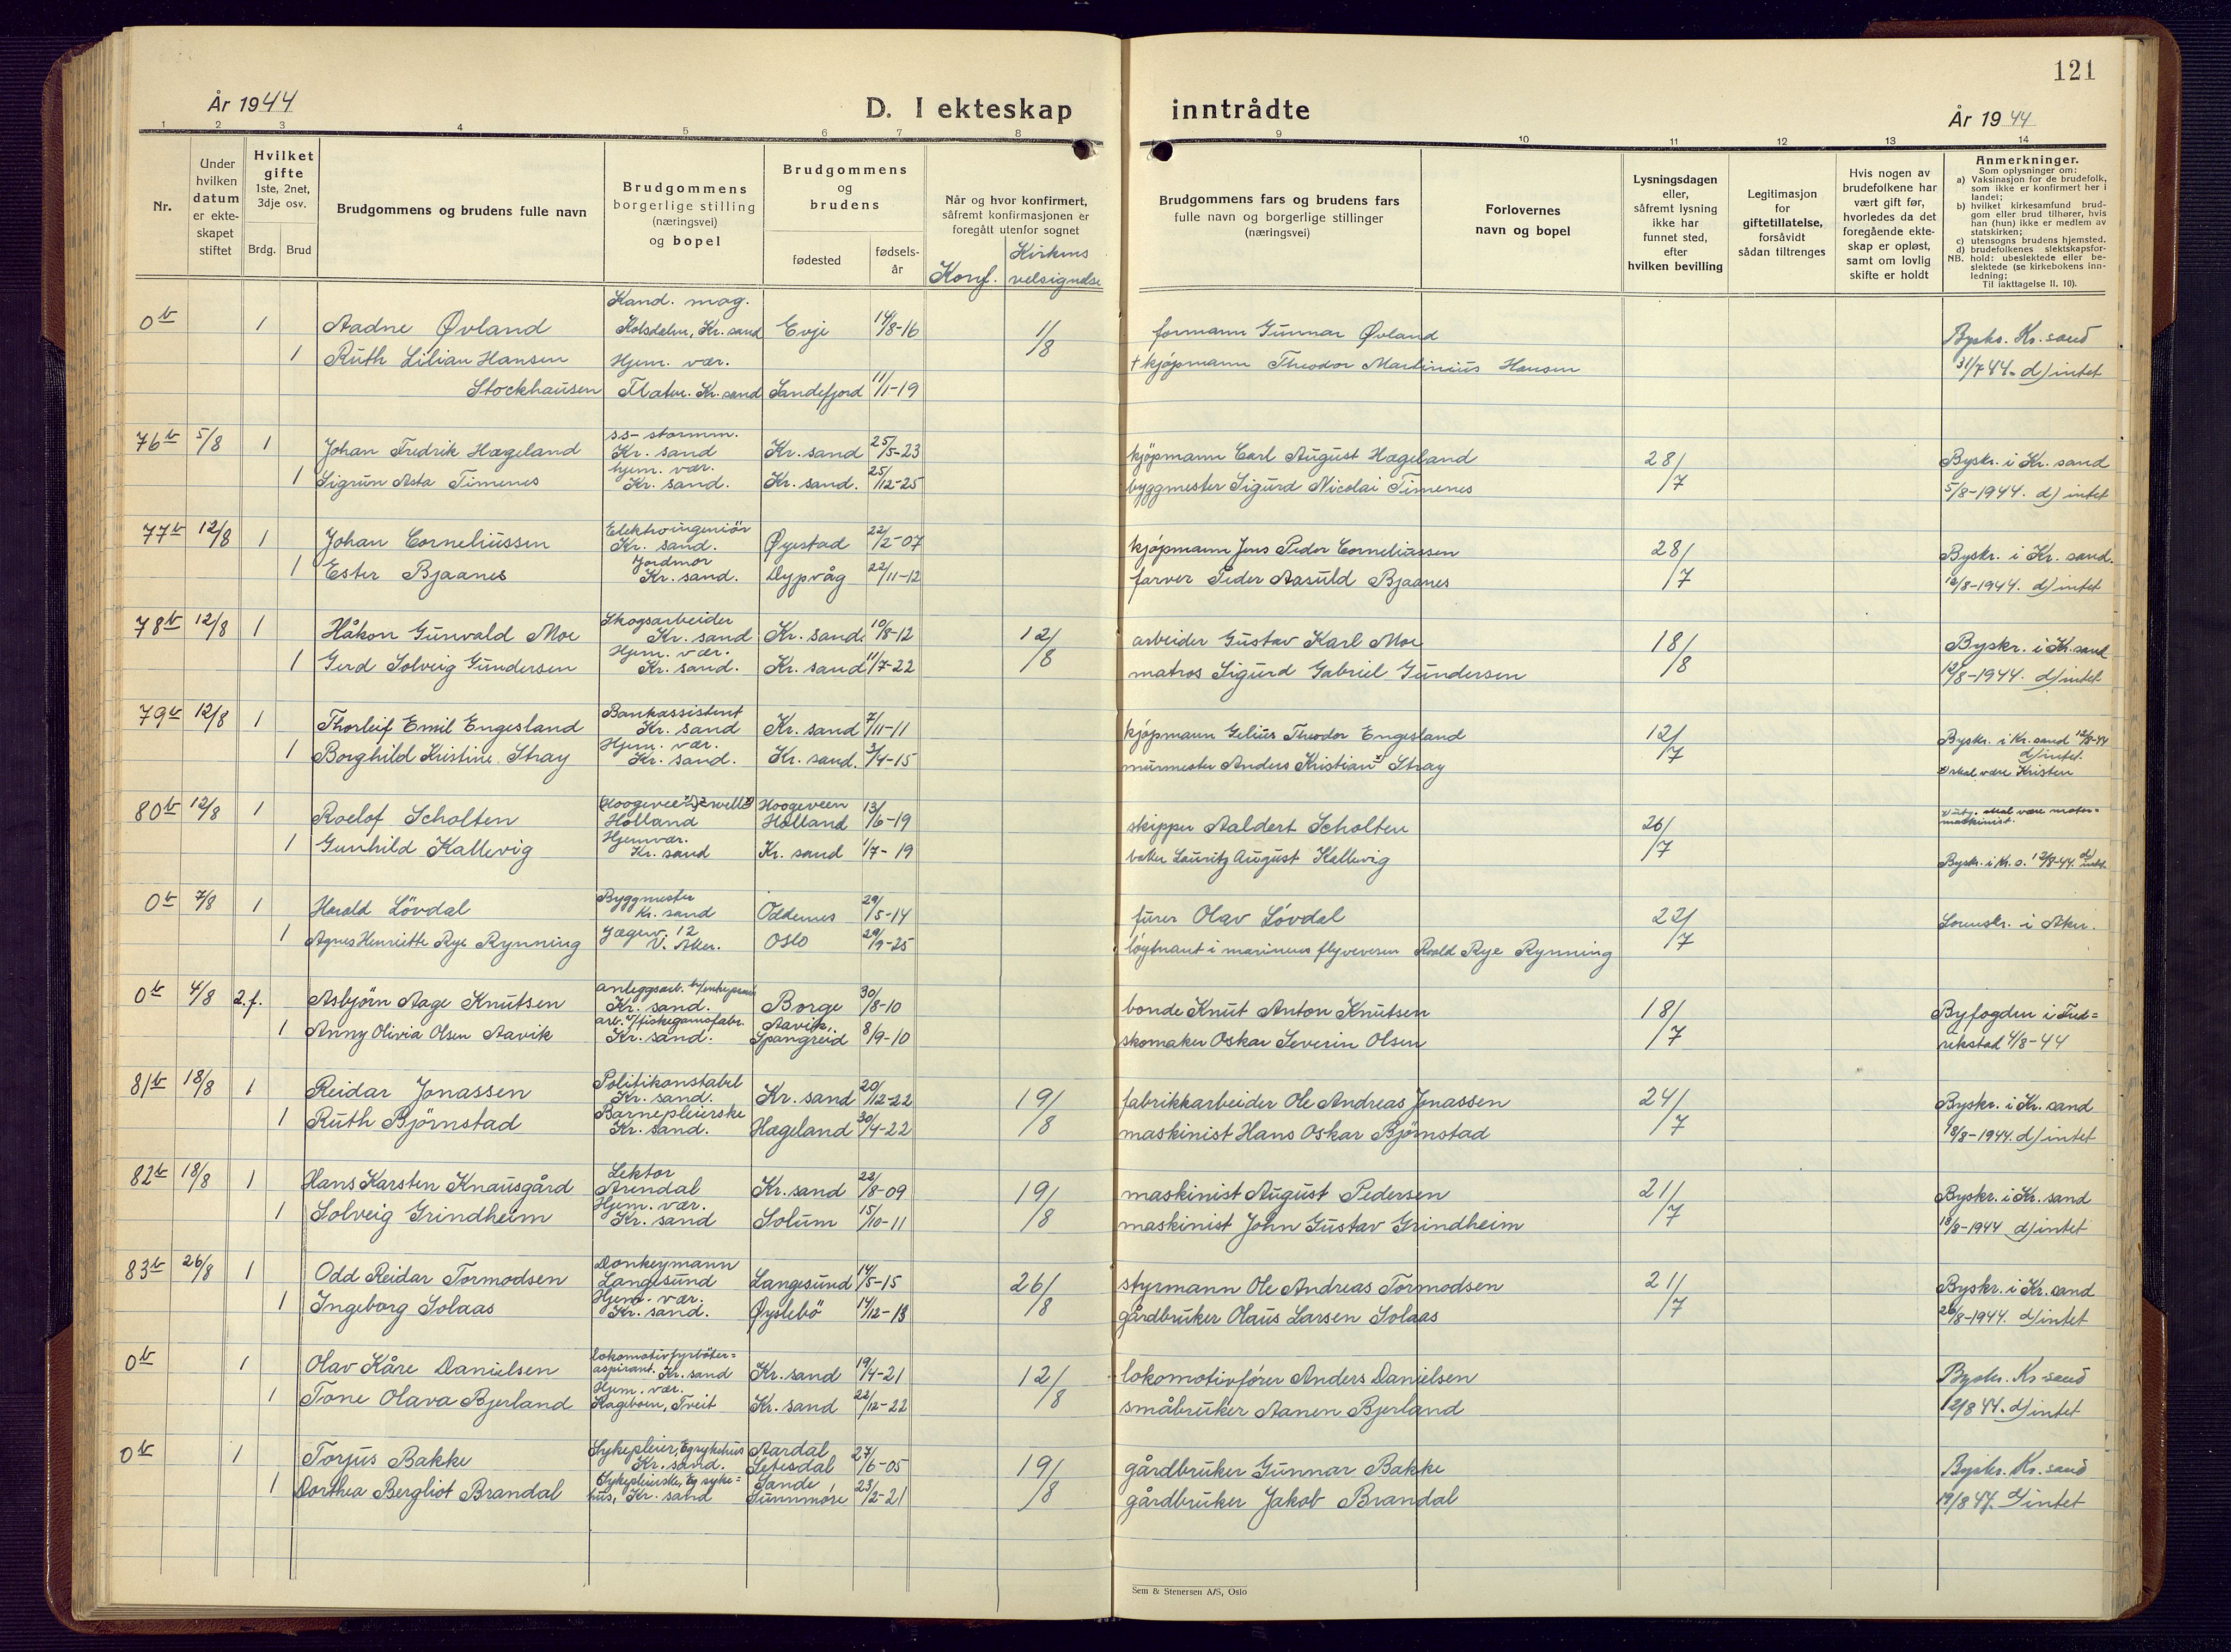 121
År 1944
D. I ekteskap inntrådte
År 1944
1 2 3 4 5 6 7 8 9 10 11 12 13 14
Nr.
Under hvilken datum er ekteskapet stiftet
Hvilket gifte 1ste, 2net, 3dje osv.
Brdg. Brud
Brudgommens og brudens fulle navn
Brudgommens borgerlige stilling (næringsvei) og bopel
Brudgommens og brudens
fødested
fødselsår
Når og hvor konfirmert, såfremt konfirmasjonen er foregått utenfor sognet
Konf. Kirkens velsignelse
Brudgommens fars og brudens fars fulle navn og borgerlige stillinger (næringsvei)
Forlovernes navn og bopel
Lysningsdagen eller, såfremt lysning ikke har funnet sted, efter hvilken bevilling
Legitimasjon for giftetillatelse, forsåvidt sådan tiltrenges
Hvis nogen av brudefolkene har vært gift før, hvorledes da det foregående ekteskap er opløst, samt om lovlig skifte er holdt
Anmerkninger.
Som oplysninger om:
a) Vaksinasjon for de brudefolk, som ikke er konfirmert her i landet;
b) hvilket kirkesamfund brudgom eller brud tilhører, hvis han (hun) ikke er medlem av statskirken;
c) utensogns brudens hjemsted.
d) brudefolkenes slektskapsforhold: ubeslektede eller beslektede (se kirkebokens innledning;
NB.
Til iakttagelse II. 10).
0 b 1 Aadne Øvland Kand. mag. Kolsdalen, Kr. sand Evje 14/8-16 11/8 formann Gunnar Øvland Byskr. Kr. sand
1 Ruth Lilian Hansen Hjem. vær. † kjøpmann Theodor Martinius Hansen 31/7 44. d) intet
Stockhausen Flatm. Kr. sand Sandefjord 11/1-19
76 b 5/8 1 Johan Fredrik Hægeland s.s-stormm. Kr. sand Kr. sand 25/5-23 kjøpmann Carl August Hægeland 28/7 Byskr. i Kr. sand
1 Sigrun Asta Timenes hjem. vær. Kr. sand. Kr. sand. 25/12-25 byggmester Sigurd Nicolai Timenes 5/8-1944. d) intet
77 b 12/8 1 Johan Corneliussen Elektroingeniør Kr. sand. Øyestad 22/2-07 kjøpmann Jens Peder Corneliussen 28/7 Byskr. i Kr. sand.
1 Ester Bjaanes Jordmor Kr. sand. Dypvåg 22/11-12 farver Peder Aasuld Bjaanes 12/8-1944. d) intet
78 b 12/8 1 Håkon Gunvald Moe Skogsarbeider Kr. sand Kr. sand. 10/8-12 12/8 arbeider Gustav Karl Moe 18/8 Byskr. i Kr. sand
1 Gerd Solveig Gundersen Hjem. vær. Kr. sand. Kr. sand 11/7-22 matros Sigurd Gabriel Gundersen 12/8-1944. d) intet
79 b 12/8 1 Thorleif Emil Engesland Bankassistent Kr. sand Kr. sand 7/11-11 kjøpmann Gelius Theodor Engesland 12/7 Byskr. i Kr. sand 12/8-44
1 Borghild Kristine Stray Hjem. vær. Kr. sand. Kr. sand. 3/4-15 murmester Anders Kristian x) Stray d) intet.
x) skal være Kristen
80 b 12/8 1 Roelof Scholten Hoogeveen Holland Hoogeveen Holland 13/6-19 skipper Aaldert Scholten 26/7 skal være motormaskinist.
1 Gunhild Kallevig Hjem vær. Kr. sand Kr. sand 1/7-19 baker Lauritz August Kallevig Byskr. i Kr. s. 12/8-44. d) intet.
0 b 7/8 1 Harald Lövdal Byggmester Kr. sand Oddernes 29/5-14 furer Olav Lövdal 22/7 Sorenskr. i Aker.
1 Agnes Henriette Rye Rynning Jægerv. 12 V. Aker. Oslo 29/9-25 løytnant i marinens flyvevesen Roald Rye Rynning
0 b 4/8 2.f. Asbjörn Aage Knutsen anleggsarb. Kr. sand. Borge 30/8-10 bonde Knut Anton Knutsen 18/7 Byfogden i Fred=
1 Anny Olivia Olsen Aavik arb. v/ fiskegarnsfabr. Kr. sand. Aavik, Spangreid 8/9-10 skomaker Oskar Severin Olsen rikstad 4/8-44
81 b 18/8 1 Reidar Jonassen Politikonstabel Kr. sand. Kr. sand 20/12-22 19/8 fabrikkarbeider Ole Andreas Jonassen 24/7 Byskr. i Kr. sand
1 Ruth Björnstad Barnepleierske Kr. sand. Hægeland 30/4-22 maskinist Hans Oskar Björnstad 18/8-1944. d) intet
82 b 18/8 1 Hans Karsten Knausgård Lektor Arendal Kr. sand 22/8-09 19/8 maskinist August Pedersen 21/7 Byskr. i Kr. sand
1 Solveig Grindheim Hjem. vær. Kr. sand Solum 15/10-11 maskinist John Gustav Grindheim 18/8-1944 d) intet
83 b 26/8 1 Odd Reidar Tormodsen Donkeymann Langesund Langesund 14/5-15 26/8 styrmann Ole Andreas Tormodsen 21/7 Byskr. i Kr. sand
1 Ingeborg Solaas Hjem. vær. Kr. sand. Øyslebö 14/12-13 gårdbruker Olaus Larsen Solaas 26/8-1944. d) intet
0 b 1 Olav Kåre Danielsen lokomotivfyrböter=aspirant. Kr. sand Kr. sand 19/4-21 12/8 lokomotivfører Anders Danielsen Byskr. Kr. sand
1 Tone Olava Bjerland Hjem. vær. Hageboen, Tveit Kr. sand 22/12-22 småbruker Aanen Bjerland 12/8 44. d) intet
0 b 1 Torjus Bakke Sykepleier, Eg sykehus Kr. sand. Aardal Setesdal 27/6-05 19/8 gårdbruker Gunnar Bakke Byskr. Kr. sand
1 Dorthea Bergliot Brandal Sykepleierske, Eg syke=hus, Kr. sand Sande Sunnmöre 23/2-21 gårdbruker Jakob Brandal 19/8 44. d) intet
Sem & Stenersen A/S, Oslo